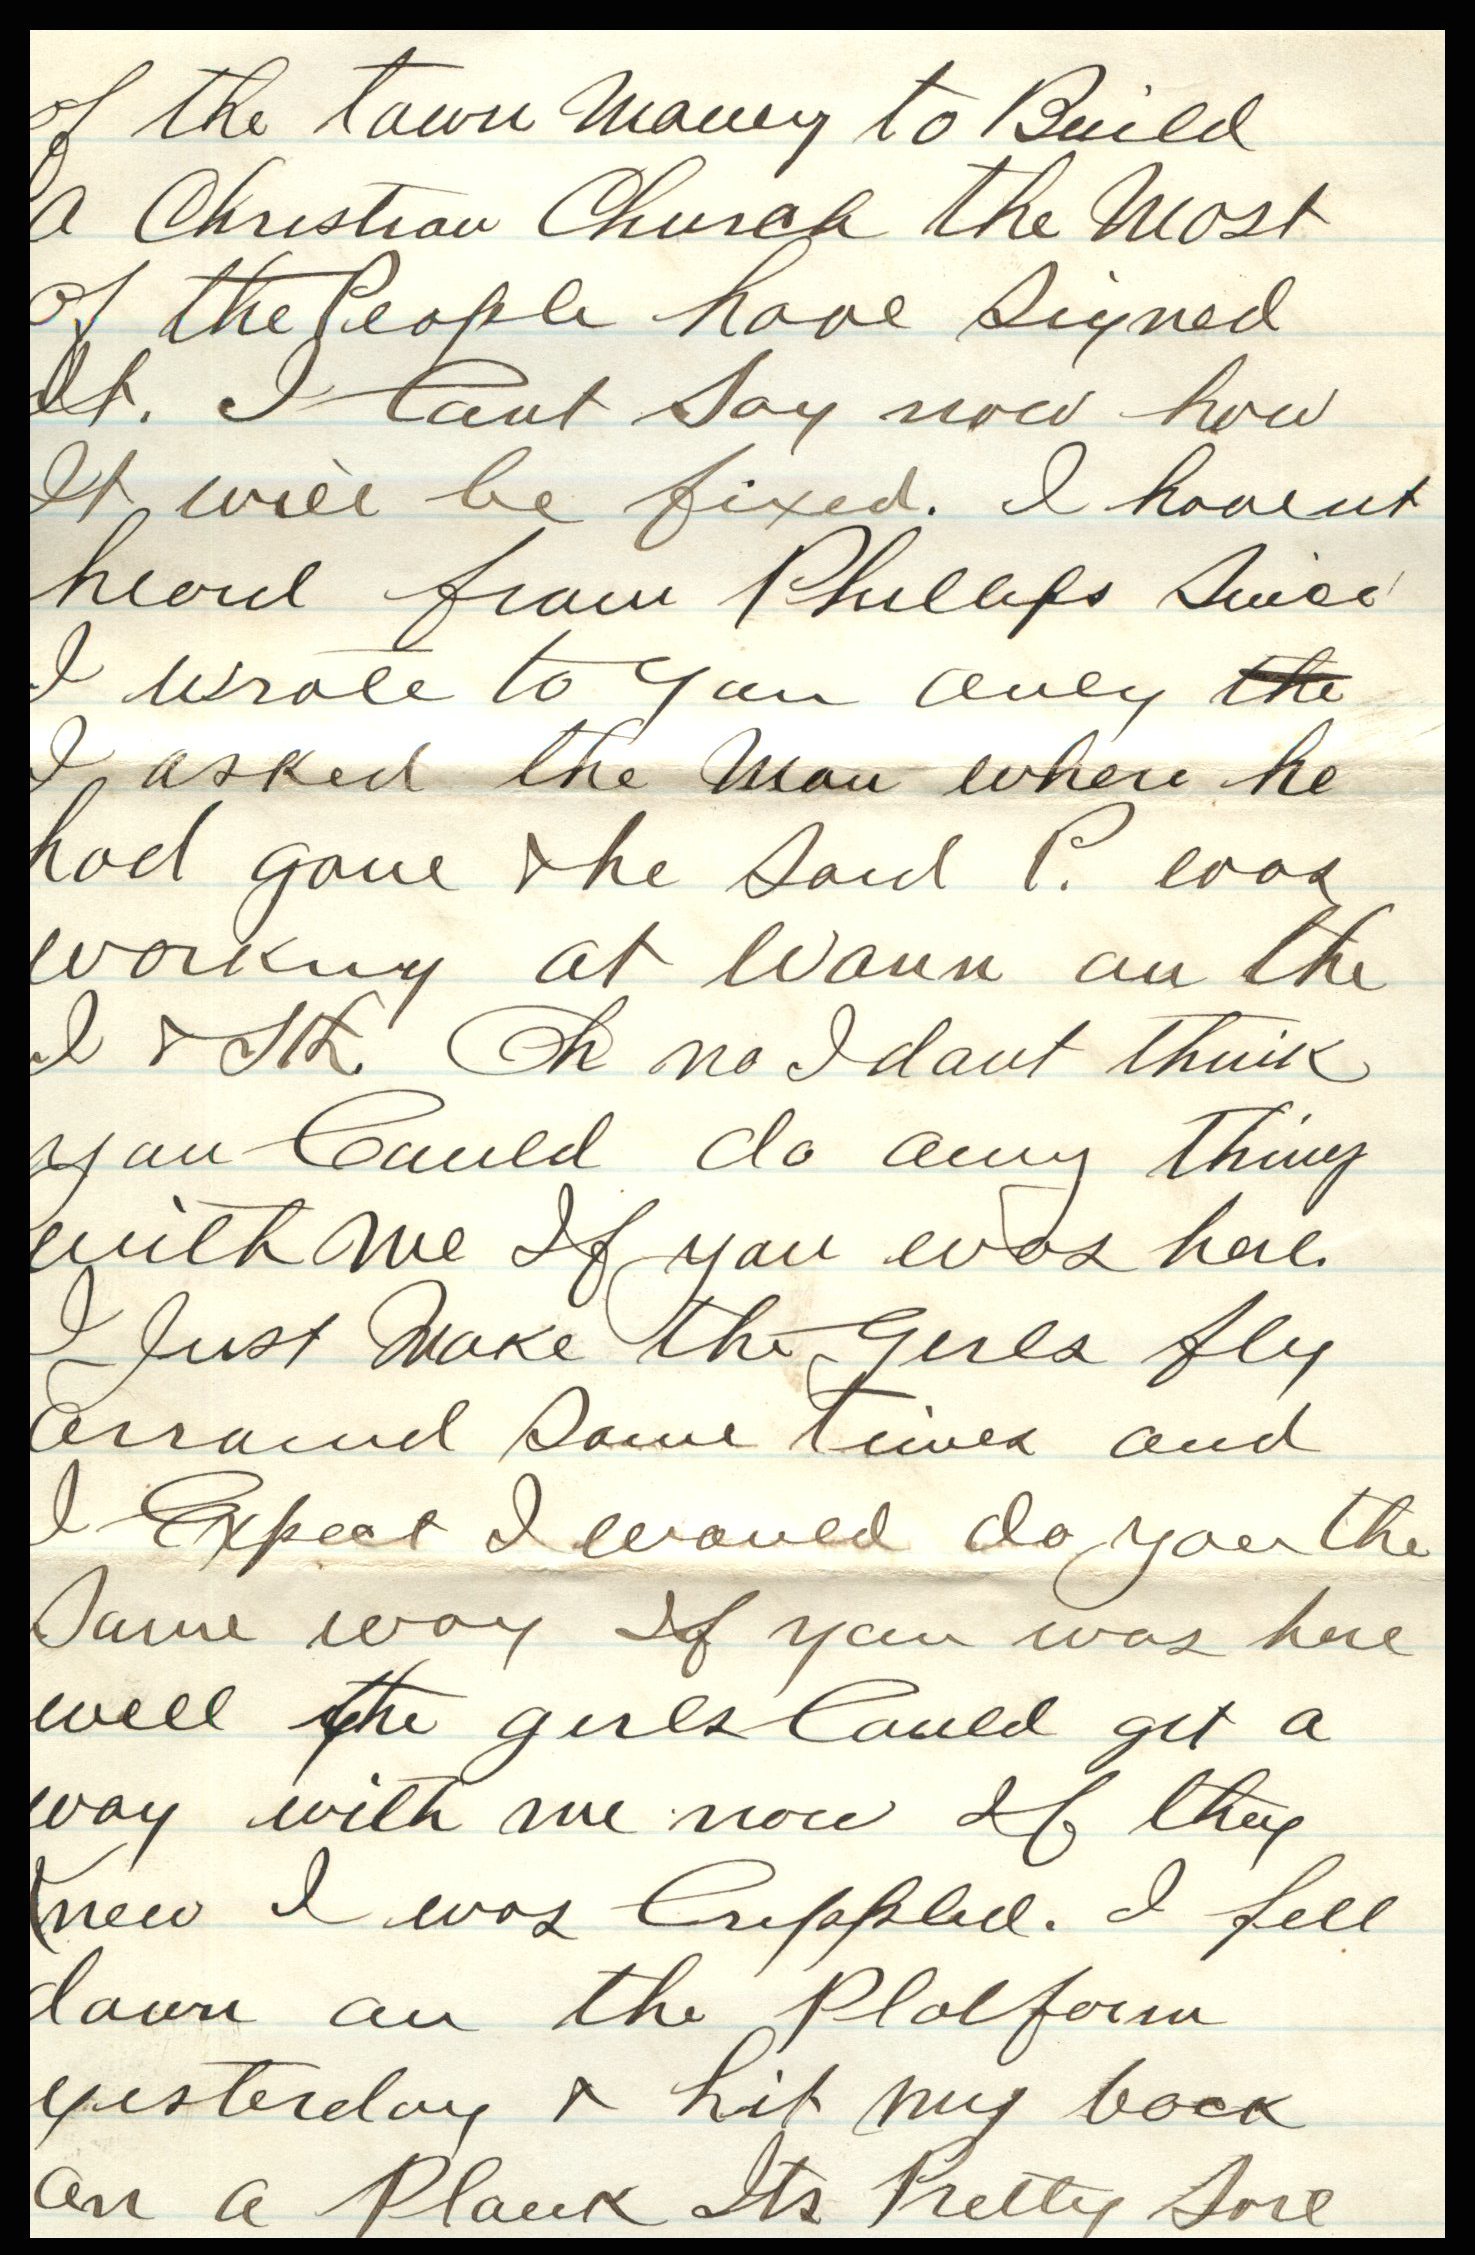 of the town Money to Build
a Christian Church the Most
of the People have Signed
It. I Cant Say now how
It will be fixed. I havent
heard from Phillips Since
I wrote to you only the
I asked the Man where he
had gone & he Said P. was
working at Wann on the
I &
Oh no I dont think
you Could do any thing
with Me If you was here.
I Just Make the Girls fly
arround Some Times and
I Expect I would do you the
Same way If you was here
well the girls Could get a
way with me now If they
Knew I was Crippled. I fell
down on the Platform
yesterday & hit my back
on a Plank Its Pretty Sore